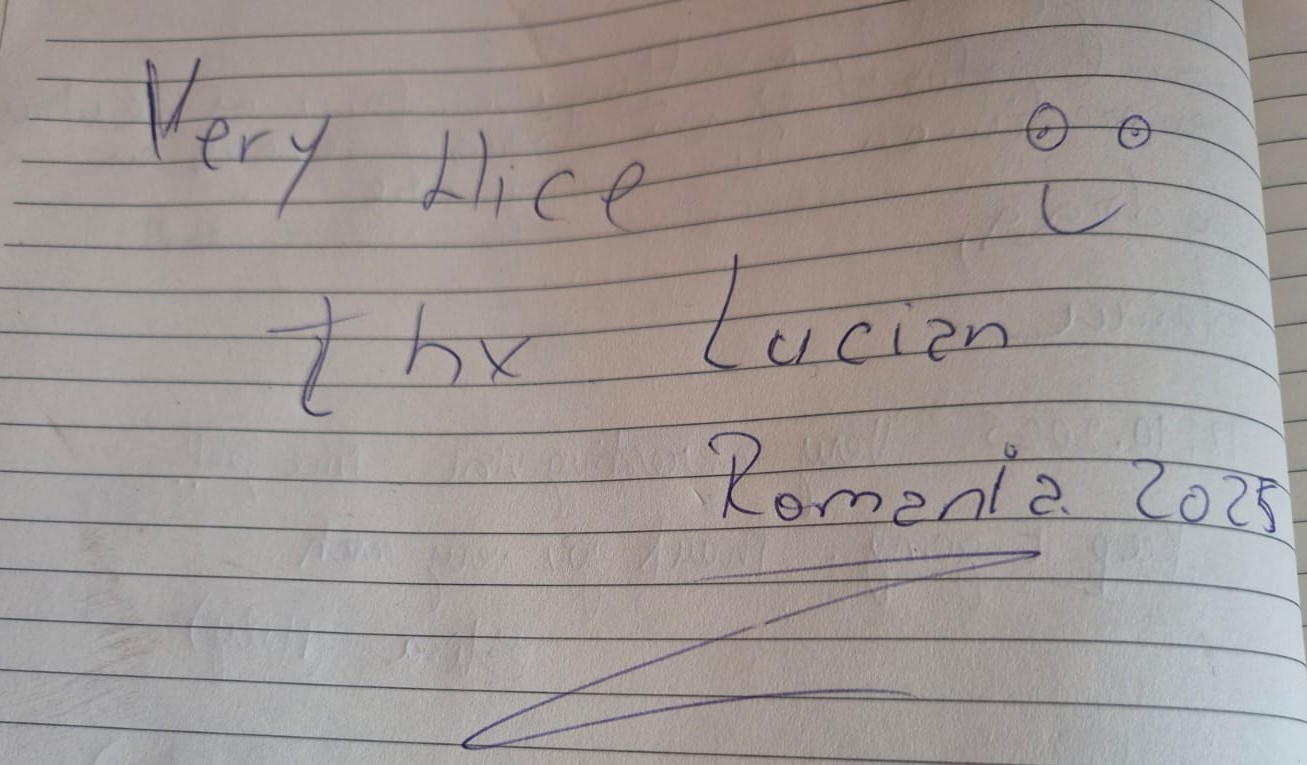 Very Nice
thx Lucian
Romania 2025